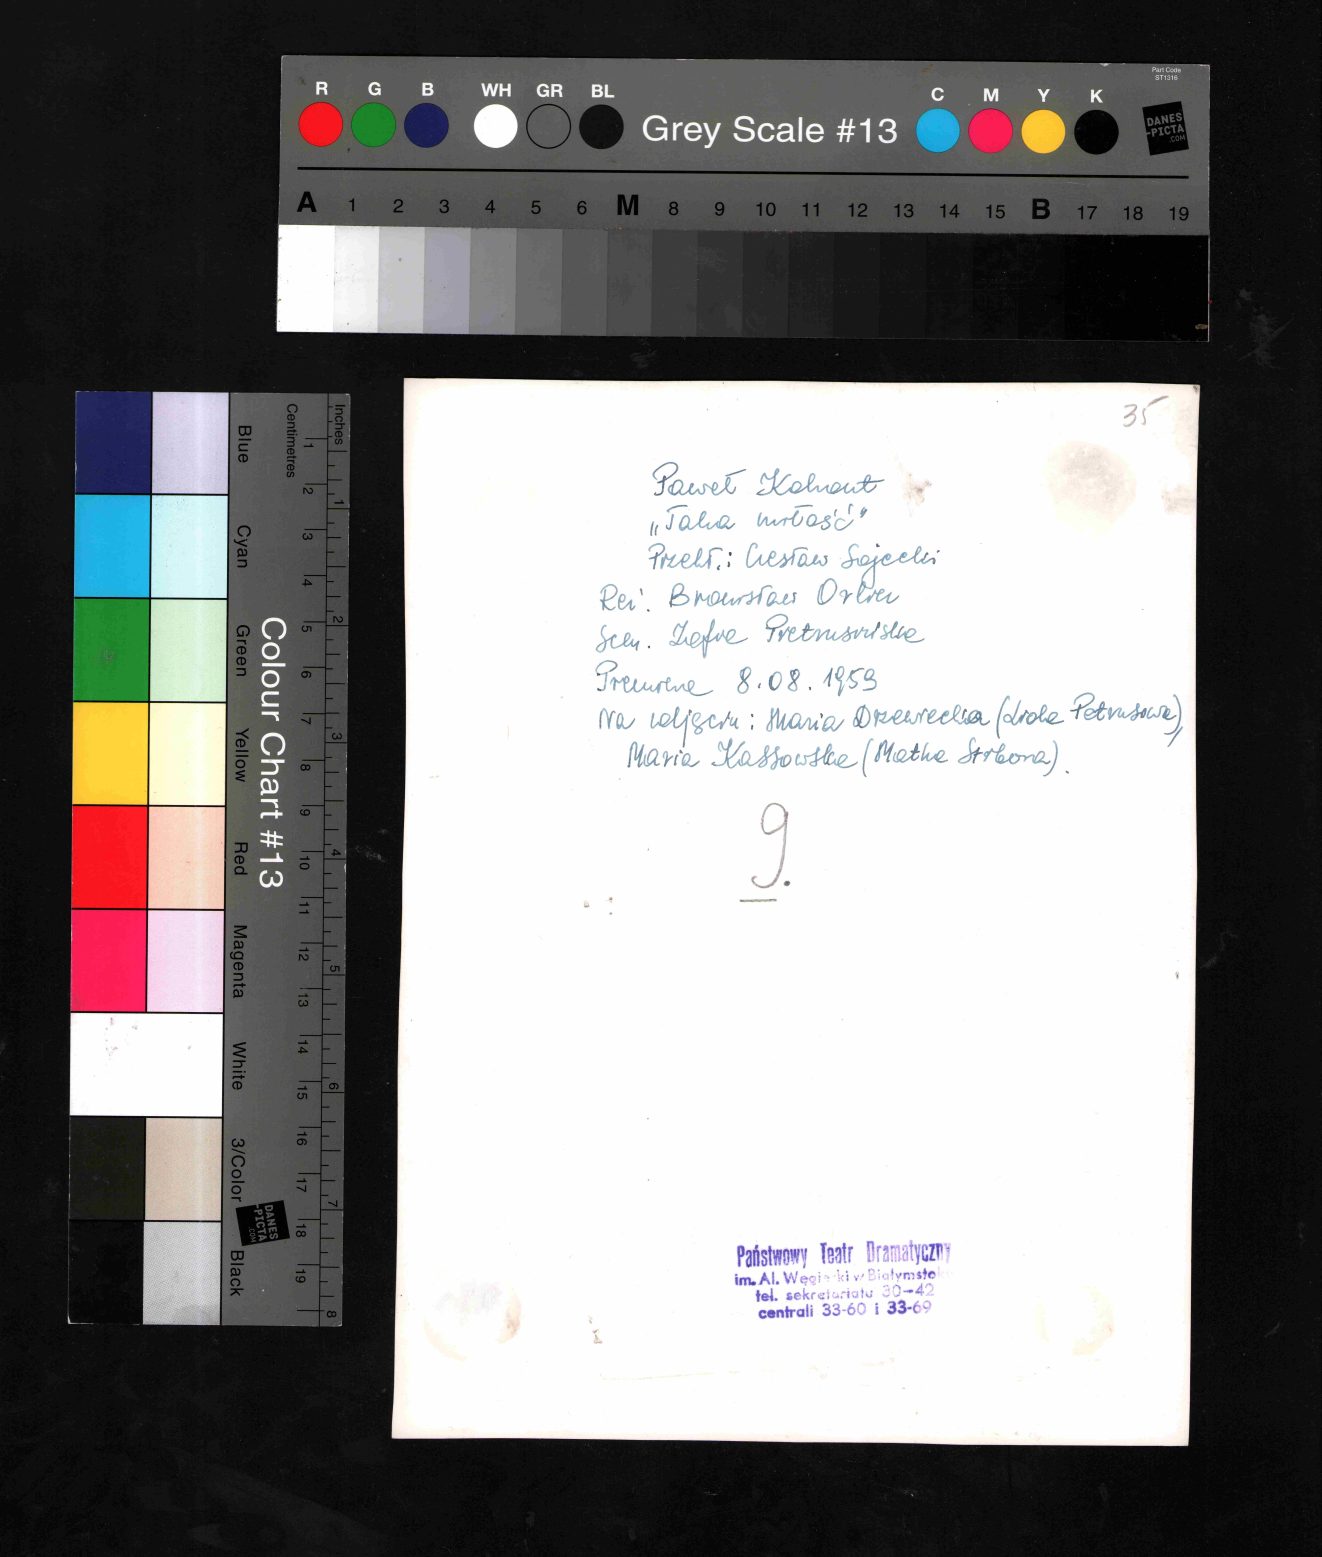 Part Code
ST1316
R G B WH GR BL Grey Scale #13 C M Y K
DANES
-PICTA
.COM
A 1 2 3 4 5 6 M 8 9 10 11 12 13 14 15 B 17 18 19
Colour Chart #13
Blue Cyan Green Yellow Red Magenta White 3/Color Black
Centimetres 1 2 3 4 5 6 7 8 9 10 11 12 13 14 15 16 17 18 19
Inches 1 2 3 4 5 6 7 8
DANES
-PICTA
.COM
35
Paweł Kohout
„Taka miłość”
Przekł.: Czesław Sojecki
Reż. Bronisław Orlicz
Scen. Zofia Pietrusińska
Premiera 8.08.1959
Na zdjęciu: Maria Drzewiecka (Lida Petrusowa),
Maria Kassowska (Matka Stibora).
9.
Państwowy Teatr Dramatyczny
im. Al. Węgierki w Białymstoku
tel. sekretariatu 30-42
centrali 33-60 i 33-69